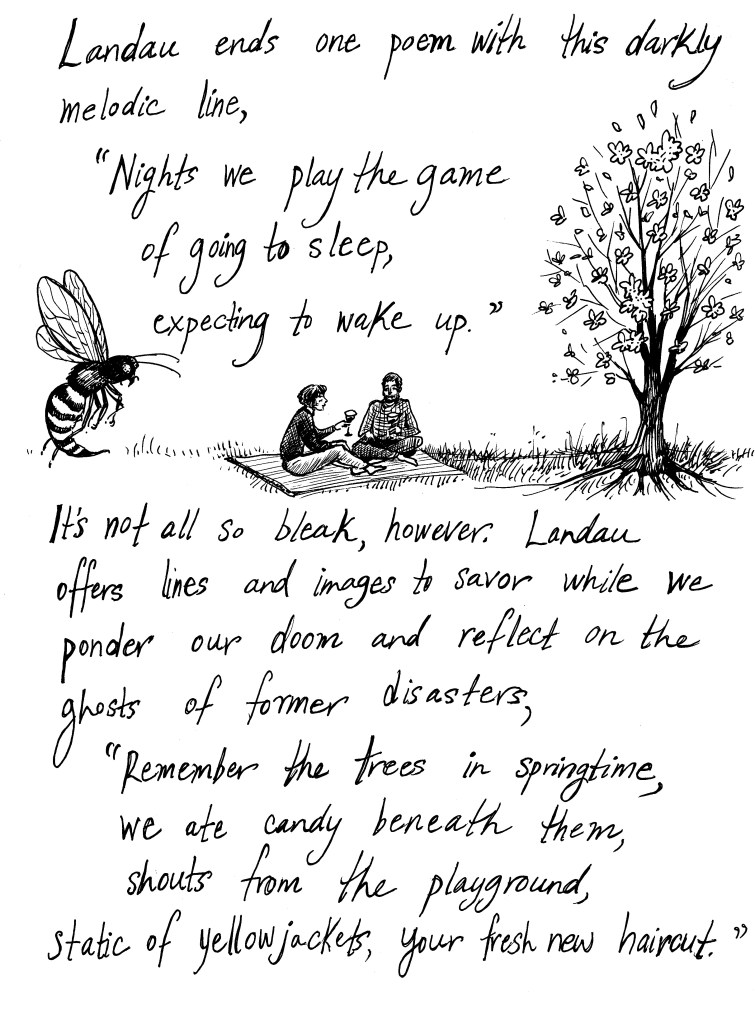 Landau ends one poem with this darkly
melodic line,
"Nights we play the game
of going to sleep,
expecting to wake up."
It's not all so bleak, however. Landau
offers lines and images to savor while we
ponder our doom and reflect on the
ghosts of former disasters,
"Remember the trees in springtime,
we ate candy beneath them,
shouts from the playground,
static of yellowjackets, your fresh new haircut."